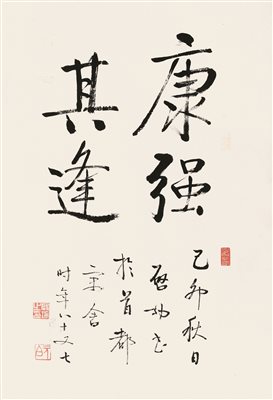 康强
其逢
己卯秋日
啟功书
於首都
寓舍
时年八十又七